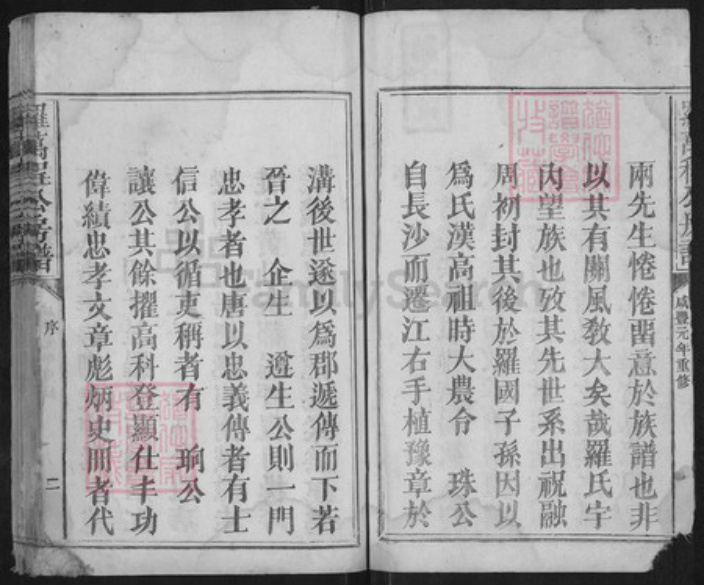 兩先生惓惓畱意於族譜也非
以其有關風敎大矣哉羅氏宇
內望族也攷其先世系出祝融
周初封其後於羅國子孫因以
爲氏漢高祖時大農令 珠公
自長沙而遷江右手植豫章於
咸豐元年重修
溝後世遂以爲郡遞傳而下若
晉之 企生 遵生公則一門
忠孝者也唐以忠義傳者有士
信公以循吏稱者有 珦公
讓公其餘擢高科登顯仕丰功
偉績忠孝文章彪炳史冊者代
序
二
FamilySearch